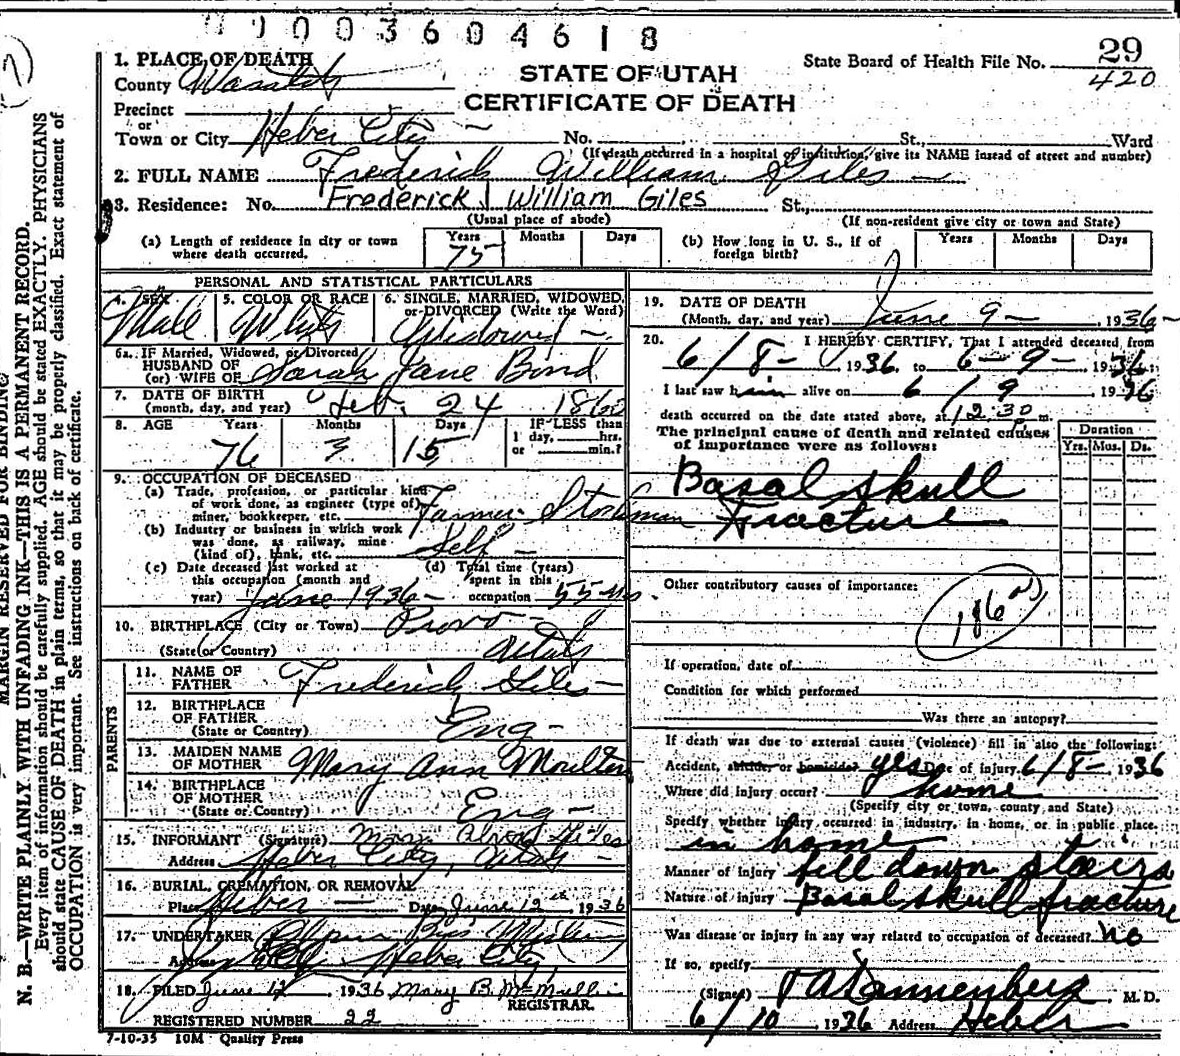 003604618
1. PLACE OF DEATH
County Wasatch
STATE OF UTAH
CERTIFICATE OF DEATH
State Board of Health File No. 29
420
Precinct
or
Town or City Heber City No. St., Ward
(If death occurred in a hospital or institution, give its NAME instead of street and number)
2. FULL NAME Frederick William Giles
3. Residence: No. Frederick William Giles St.,
(Usual place of abode) (If non-resident give city or town and State)
(a) Length of residence in city or town where death occurred. Years 75 Months Days
(b) How long in U. S., if of foreign birth? Years Months Days
PERSONAL AND STATISTICAL PARTICULARS
4. SEX Male
5. COLOR OR RACE White
6. SINGLE, MARRIED, WIDOWED, or DIVORCED (Write the Word) Widowed
6a. IF Married, Widowed, or Divorced
HUSBAND OF
(or) WIFE OF Sarah Jane Bond
7. DATE OF BIRTH
(month, day, and year) Feb. 24 1860
8. AGE Years 76 Months 3 Days 15 IF LESS than 1 day, hrs. or min.?
9. OCCUPATION OF DECEASED
(a) Trade, profession, or particular kind
of work done, as engineer (type of)
miner, bookkeeper, etc. Farmer Stockman
(b) Industry or business in which work
was done, as railway, mine
(kind of), bank, etc. Self
(c) Date deceased last worked at
this occupation (month and
year) June 1936
(d) Total time (years)
spent in this
occupation 55 yrs.
10. BIRTHPLACE (City or Town) Provo
(State or Country) Utah
PARENTS
11. NAME OF
FATHER Frederick Giles
12. BIRTHPLACE
OF FATHER
(State or Country) Eng
13. MAIDEN NAME
OF MOTHER Mary Ann Moulton
14. BIRTHPLACE
OF MOTHER
(State or Country) Eng
15. INFORMANT (Signature) Mary Giles
Address Heber City, Utah
16. BURIAL, CREMATION, OR REMOVAL
Place Heber Date June 12th 1936
17. UNDERTAKER Bros
Address Heber City
18. FILED June 12 1936 Mary B. McMullin
REGISTRAR.
REGISTERED NUMBER 22
7-10-35 10M Quality Press
19. DATE OF DEATH
(Month, day, and year) June 9 1936
20. I HEREBY CERTIFY, That I attended deceased from
6/8 1936 to 6-9 1936
I last saw him alive on 6/9 1936
death occurred on the date stated above, at 12:30 m.
The principal cause of death and related causes
of importance were as follows:
Duration
Yrs. Mos. Ds.
Basal skull
Fracture
Other contributory causes of importance:
186
If operation, date of
Condition for which performed
Was there an autopsy?
If death was due to external causes (violence) fill in also the following:
Accident, suicide or homicide? yes Date of injury 6/8 1936
Where did injury occur? home
(Specify city or town, county and State)
Specify whether injury occurred in industry, in home, or in public place.
in home
Manner of injury fell down stairs
Nature of injury Basal skull fracture
Was disease or injury in any way related to occupation of deceased? No
If so, specify
(Signed) Dannenberg, M. D.
6/10 1936 Address Heber
MARGIN RESERVED FOR BINDING
N. B.—WRITE PLAINLY WITH UNFADING INK—THIS IS A PERMANENT RECORD.
Every item of information should be carefully supplied. AGE should be stated EXACTLY. PHYSICIANS
should state CAUSE OF DEATH in plain terms, so that it may be properly classified. Exact statement of
OCCUPATION is very important. See instructions on back of certificate.